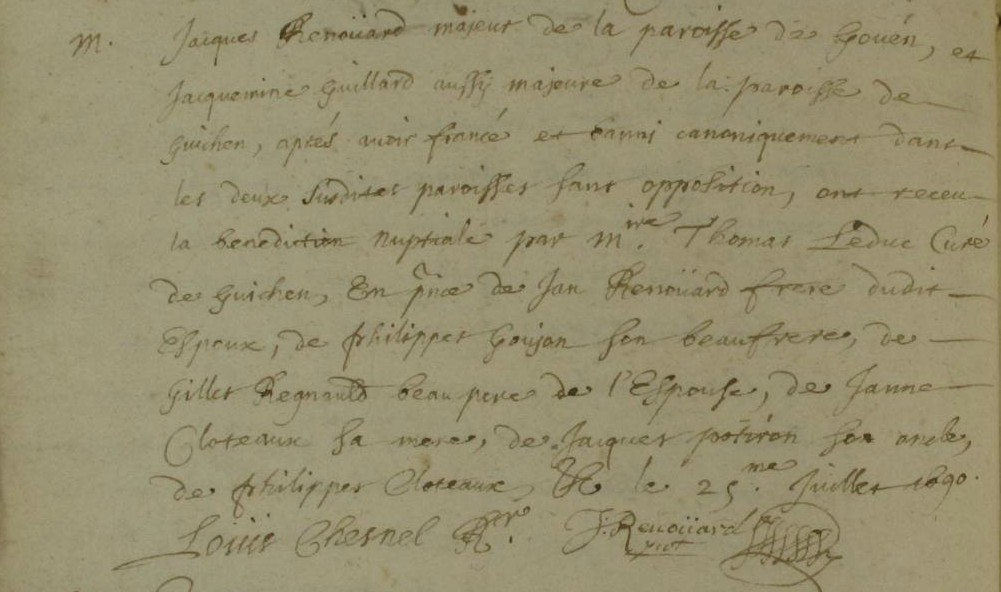 M. Jacques Renoüard majeur de la paroisse de Goüen, et
Jacquemine Guillard aussy majeure de la paroisse de
Guichen, aprés avoir fiancé et banni canoniquement dans
les deux susdites paroisses sans opposition, ont receu
la benediction nuptiale par m.ire Thomas Leduc Curé
de Guichen, En pñce de Jan Renoüard frere dudit
Espoux, de philippes Goujon son beaufrere, de
Gilles Regnauld beau pere de l'Espouse, de Janne
Cloteaux sa mere, de Jacques potiron son oncle,
de philippes Cloteaux, &c le 25.me Juillet 1690.
Loüis Chesnel R.cr J. Renoüard